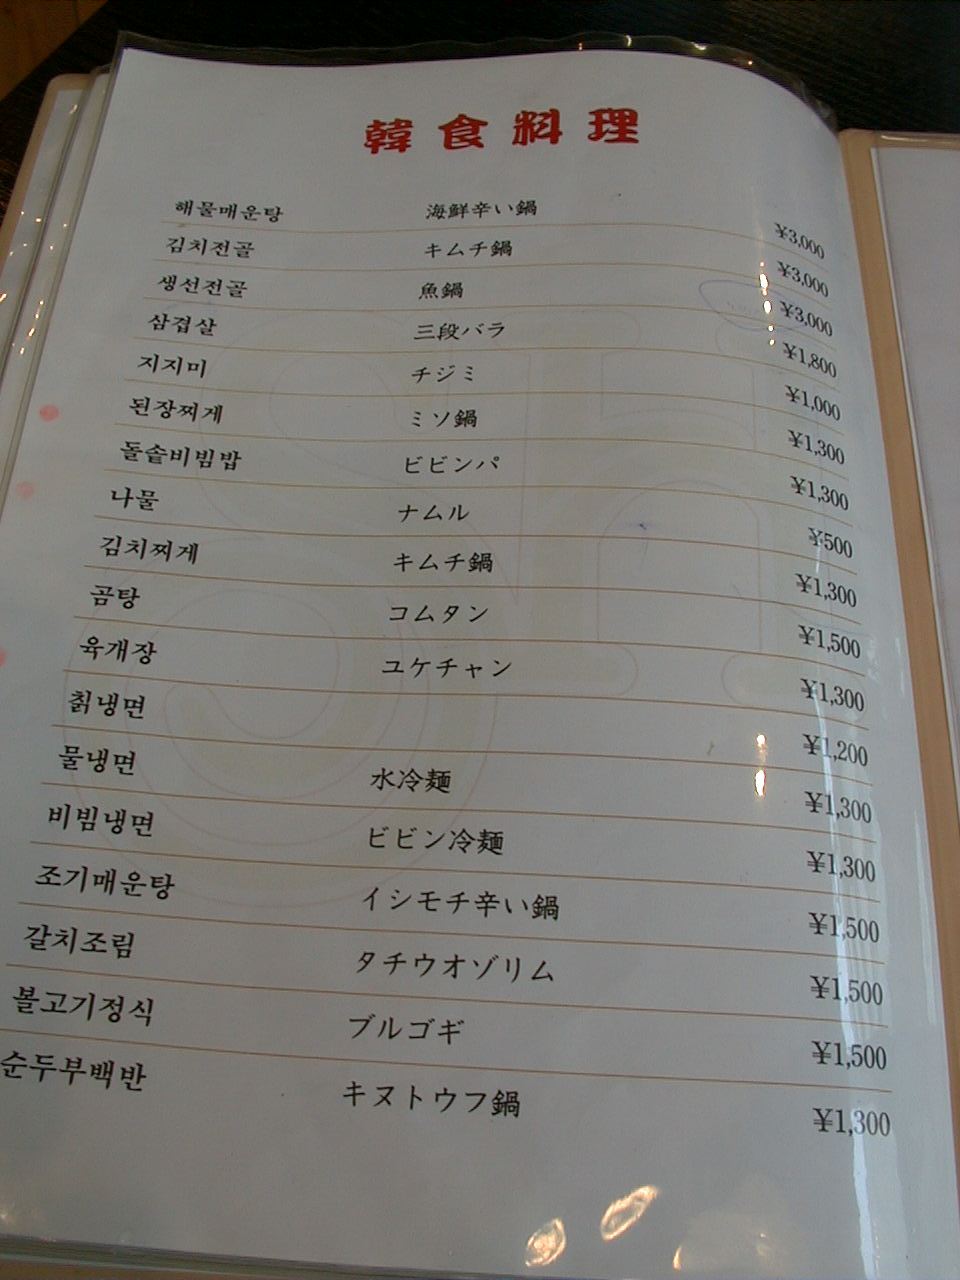 韓食料理
해물매운탕 海鮮辛い鍋 ¥3,000
김치전골 キムチ鍋 ¥3,000
생선전골 魚鍋 ¥3,000
삼겹살 三段バラ ¥1,800
지지미 チジミ ¥1,000
된장찌게 ミソ鍋 ¥1,300
돌솥비빔밥 ビビンパ ¥1,300
나물 ナムル ¥500
김치찌게 キムチ鍋 ¥1,300
곰탕 コムタン ¥1,500
육개장 ユケチャン ¥1,300
칡냉면 ¥1,200
물냉면 水冷麺 ¥1,300
비빔냉면 ビビン冷麺 ¥1,300
조기매운탕 イシモチ辛い鍋 ¥1,500
갈치조림 タチウオゾリム ¥1,500
불고기정식 ブルゴギ ¥1,500
순두부백반 キヌトウフ鍋 ¥1,300